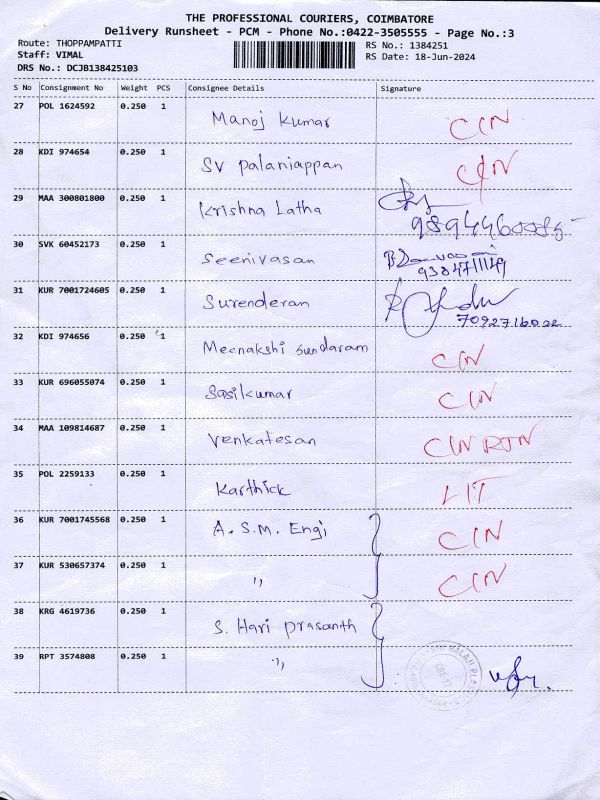 THE PROFESSIONAL COURIERS, COIMBATORE
Delivery Runsheet - PCM - Phone No.:0422-3505555 - Page No.:3
Route: THOPPAMPATTI
RS No.: 1384251
Staff: VIMAL
RS Date: 18-Jun-2024
DRS No.: DCJB138425103
S No Consignment No Weight PCS Consignee Details Signature
27 POL 1624592 0.250 1 Manoj Kumar CIN
28 KDI 974654 0.250 1 SV Palaniappan CIN
29 MAA 300801800 0.250 1 Krishna Latha
30 SVK 60452173 0.250 1 Seenivasan
9384711149
31 KUR 7001724605 0.250 1 Surenderan
32 KDI 974656 0.250 1 Meenakshi Sundaram CIN
33 KUR 696055074 0.250 1 Sasikumar CIN
34 MAA 109814687 0.250 1 Venkatesan CIN RTN
35 POL 2259133 0.250 1 Karthick LIT
36 KUR 7001745568 0.250 1 A. S.M. Engi CIN
37 KUR 530657374 0.250 1 ,, CIN
38 KRG 4619736 0.250 1 S. Hari Prasanth
39 RPT 3574808 0.250 1 ,,